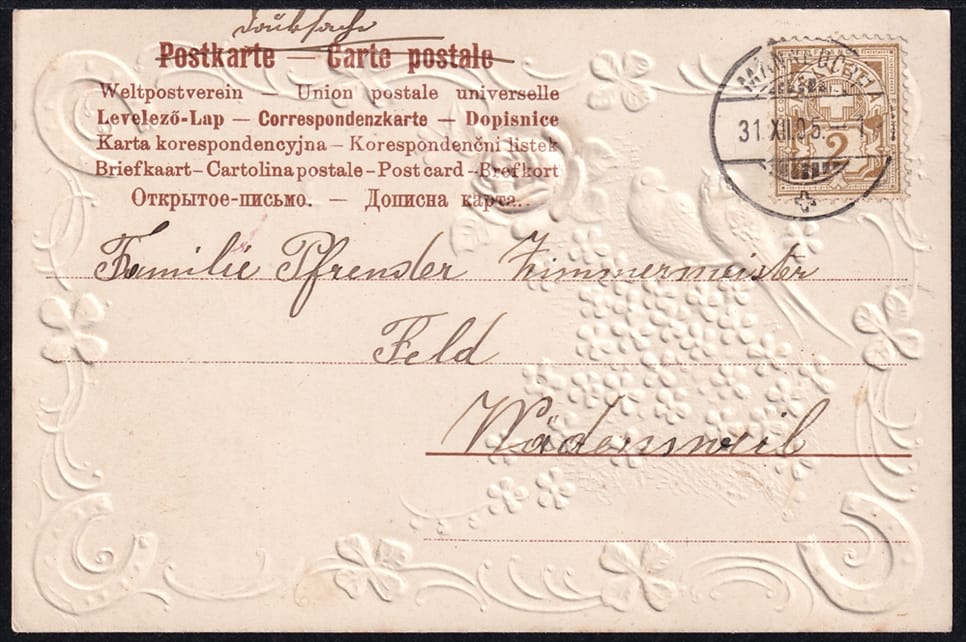 Drucksache
Postkarte — Carte postale
Weltpostverein — Union postale universelle
Levelező-Lap — Correspondenzkarte — Dopisnice
Karta korespondencyjna — Korespondenční listek
Briefkaart — Cartolina postale — Post card — Brefkort
Открытое-письмо. — Дописна карта.
MÄNNEDORF
31.XII.05.
2
Familie Pfrender Zimmermeister
Feld
Wädensweil